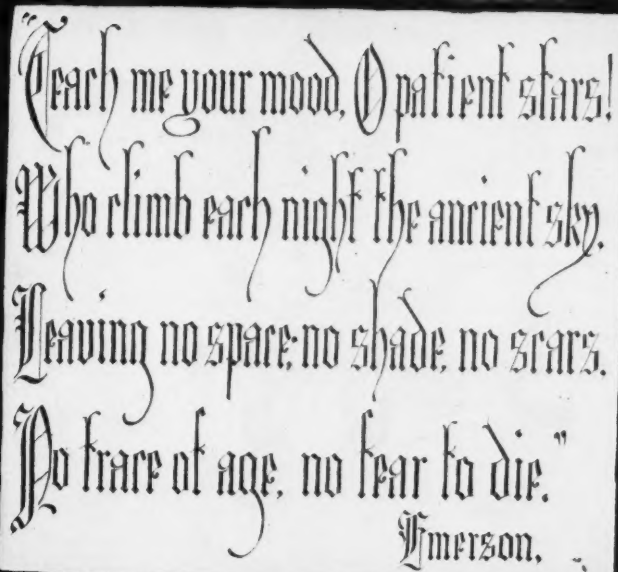 "Teach me your mood, O patient stars!
Who climb each night the ancient sky,
Leaving no space, no shade, no scars,
No trace of age, no fear to die."
Emerson.